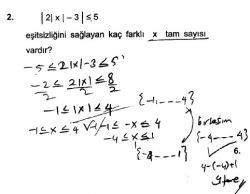 2. | 2|x| − 3 | ≤ 5
eşitsizliğini sağlayan kaç farklı x tam sayısı
vardır?
-5 ≤ 2|x|-3 ≤ 5
-2 ≤ 2|x| ≤ 8
2 2 2
-1 ≤ |x| ≤ 4 {-1, ---- 4}
-1 ≤ x ≤ 4 V -1 ≤ -x ≤ 4 birleşim
-4 ≤ x ≤ 1 {-4 ---- 4}
{-4 --- 1} 4-(-4)+1